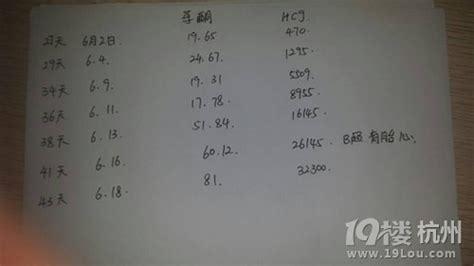 孕酮 HCG
27天 6月2日. 19.65 470.
29天 6.4. 24.67. 1295.
34天 6.9. 19.31 5509.
36天 6.11. 17.78. 8955.
38天 6.13. 51.84. 16145
41天 6.16. 60.12. 26145 B超有胎心.
43天 6.18. 81. 32300.
19楼 杭州
www.19Lou.com